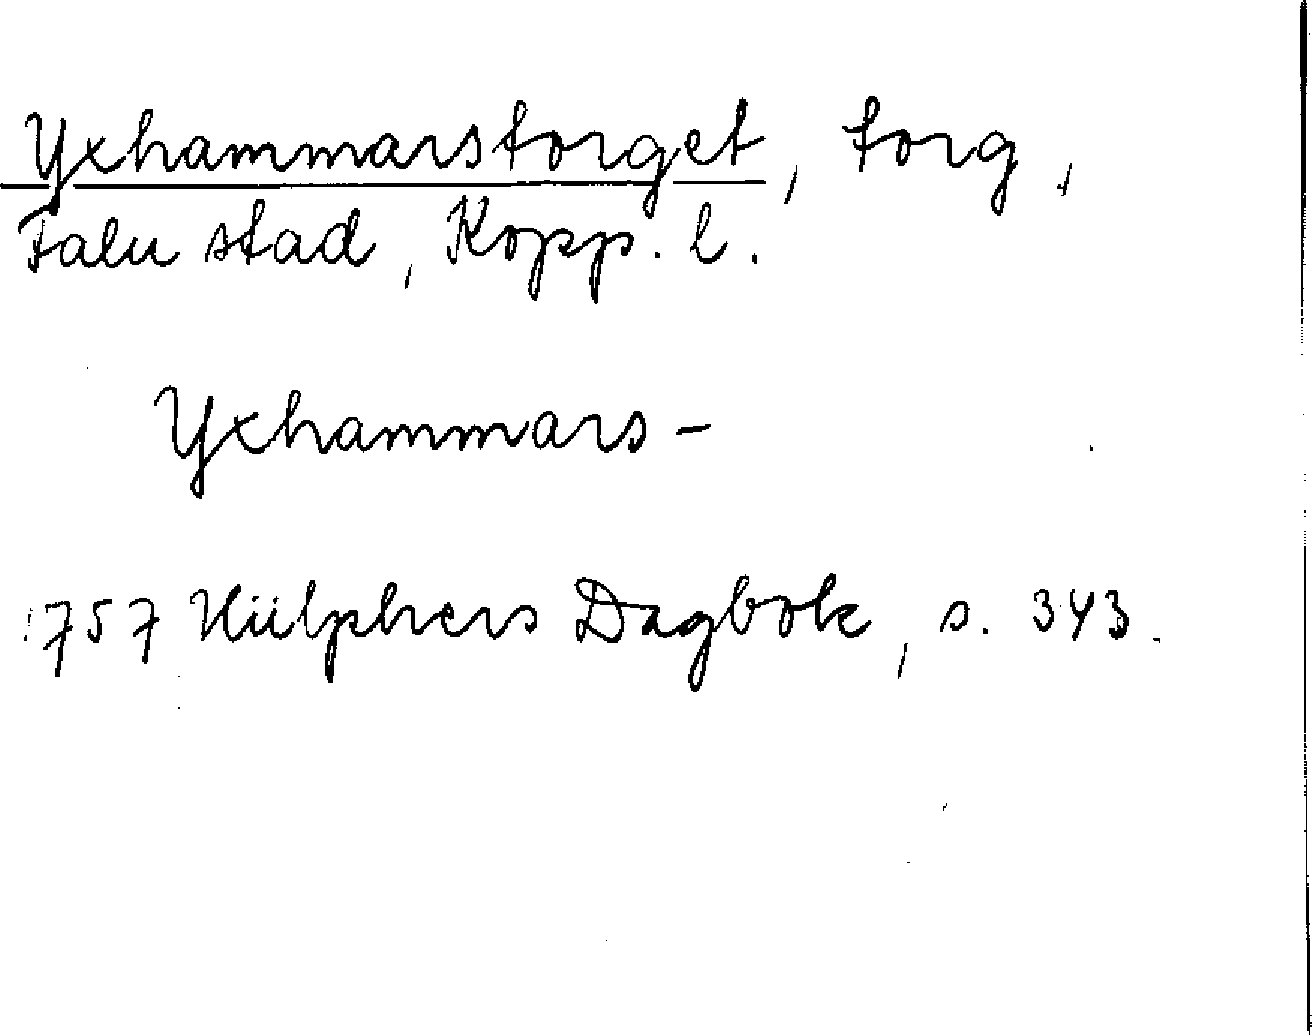 Yxhammarstorget, torg,
Falu stad, Kopp. l.
Yxhammars-
1757 Hülphers Dagbok, s. 343.